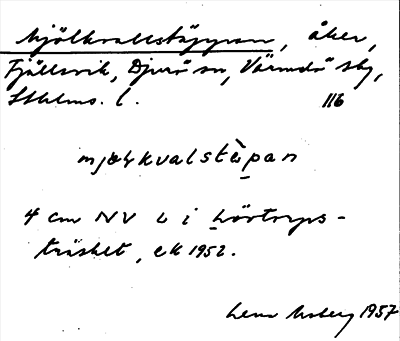 Mjölkvallstäppan, åker,
Fjällsvik, Djurö sn, Värmdö skg,
Sthlms. l. 116
mjɵlkvalstɛ̀pan
4 cm NV L i Lövtorps-
träsket, ek 1952.
1957